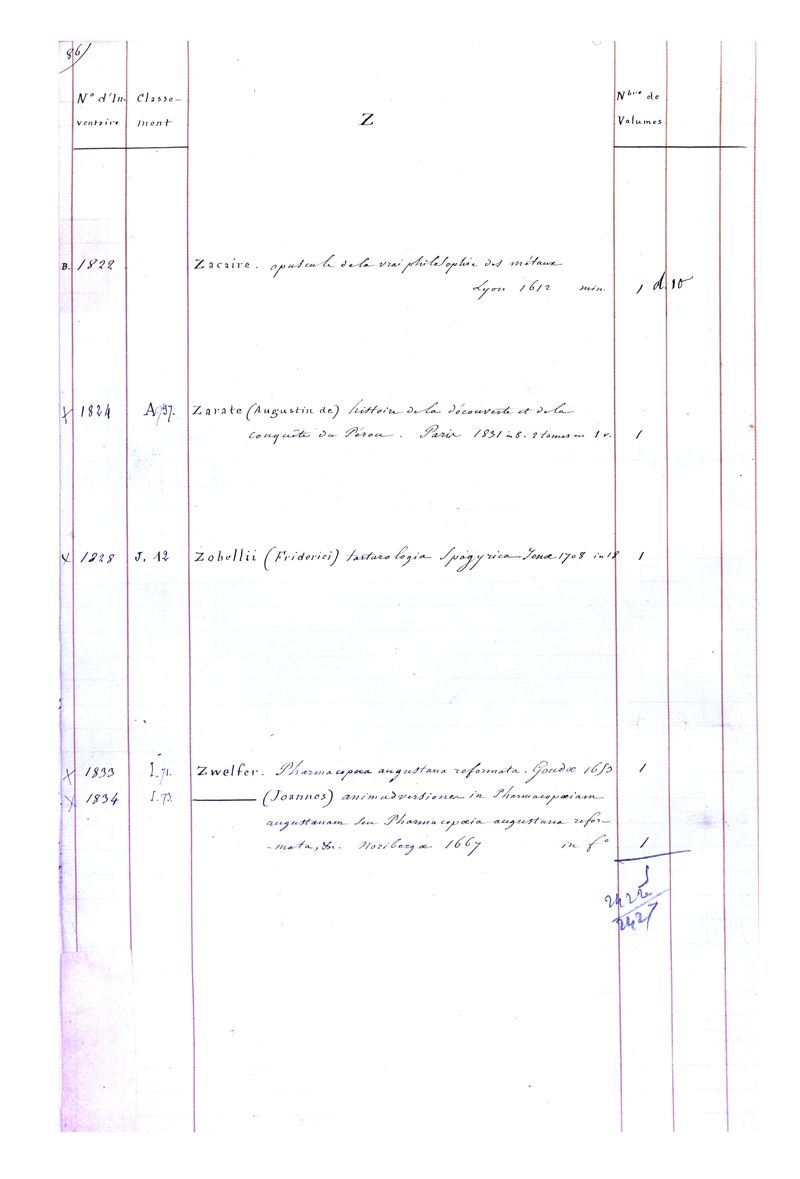 86)
N° d'In- Classe- Nbre de
ventaire ment Z Volumes
B. 1822 Zacaire. opuscule de la vrai philosophie des métaux
Lyon 1612 min. 1 d.10
X 1824 A 97. Zarate (Augustin de) histoire de la découverte et de la
conquête du Pérou. Paris 1831 in 8. 2 tomes en 1 v. 1
X 1828 J. 12 Zobellii (Friderici) tartarologia Spagyrica Jenæ 1708 in 18 1
X 1833 I.71. Zwelfer. Pharmacopœa augustana reformata. Goudæ 1653 1
X 1834 I.73. ——— (Joannes) animadversiones in Pharmacopœiam
augustanam seu Pharmacopœia augustana refor-
-mata, &c. Noribergæ 1667 in f° 1
5
2422
2427